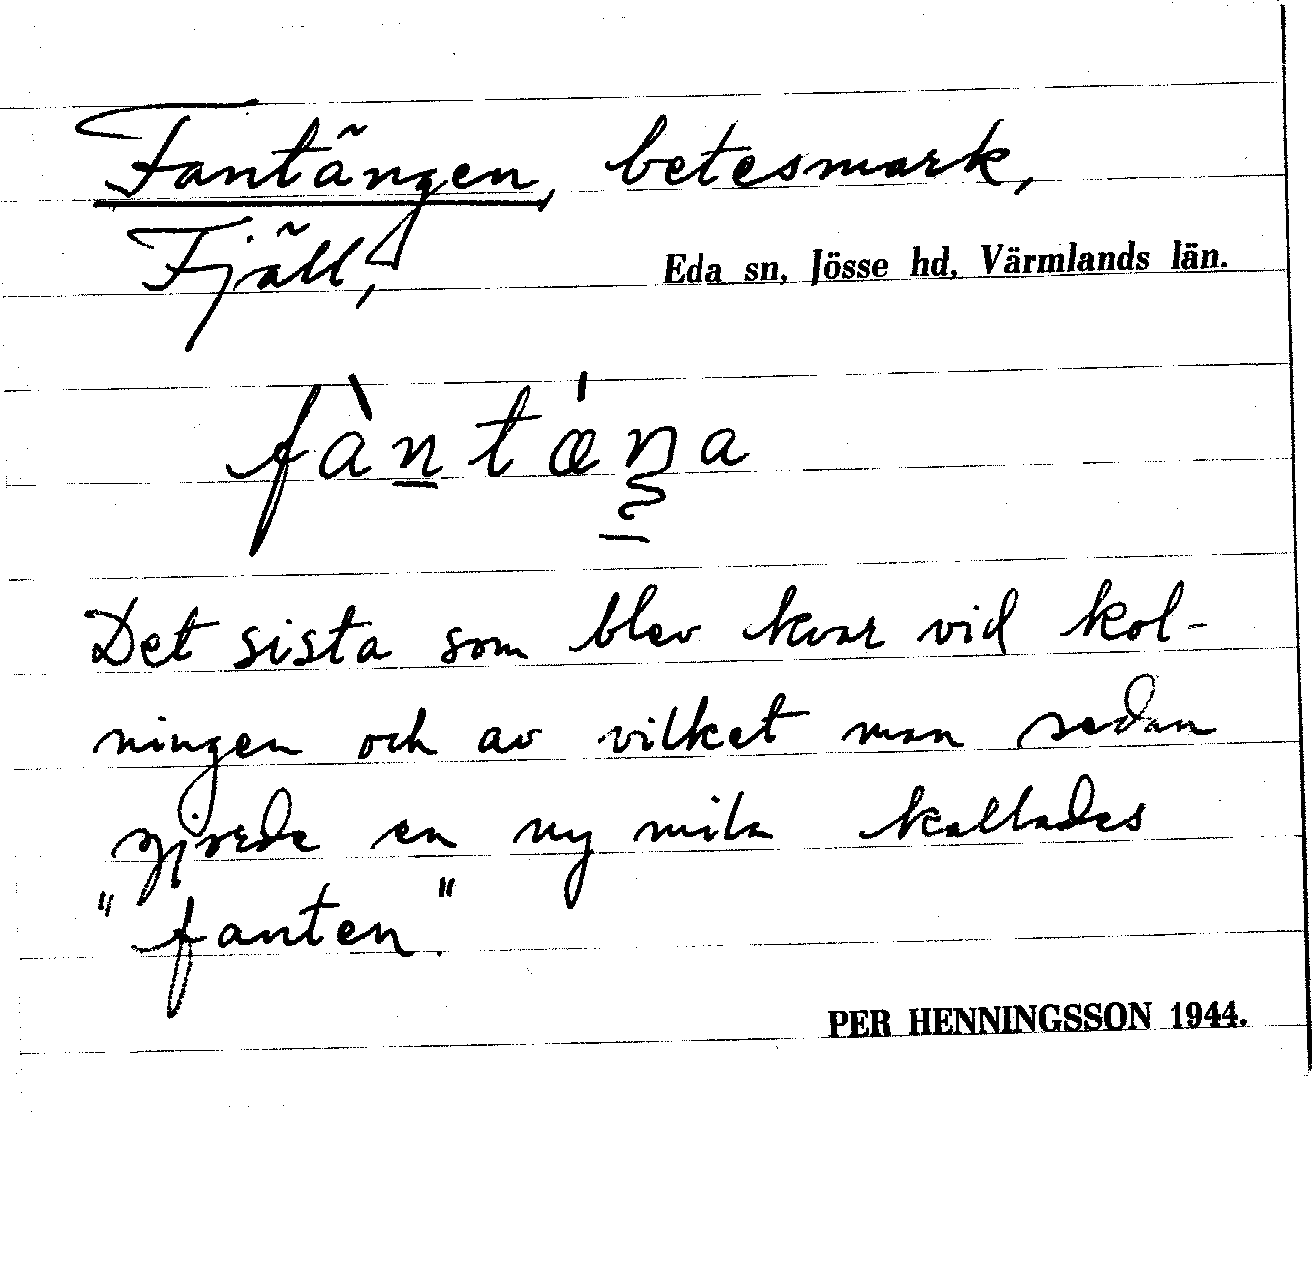 Fantängen, betesmark,
Fjäll,
Eda sn, Jösse hd, Värmlands län.
fàntæ̀ŋa
Det sista som blev kvar vid kol-
ningen och av vilket man sedan
gjorde en ny mila kallades
"fanten".
PER HENNINGSSON 1944.